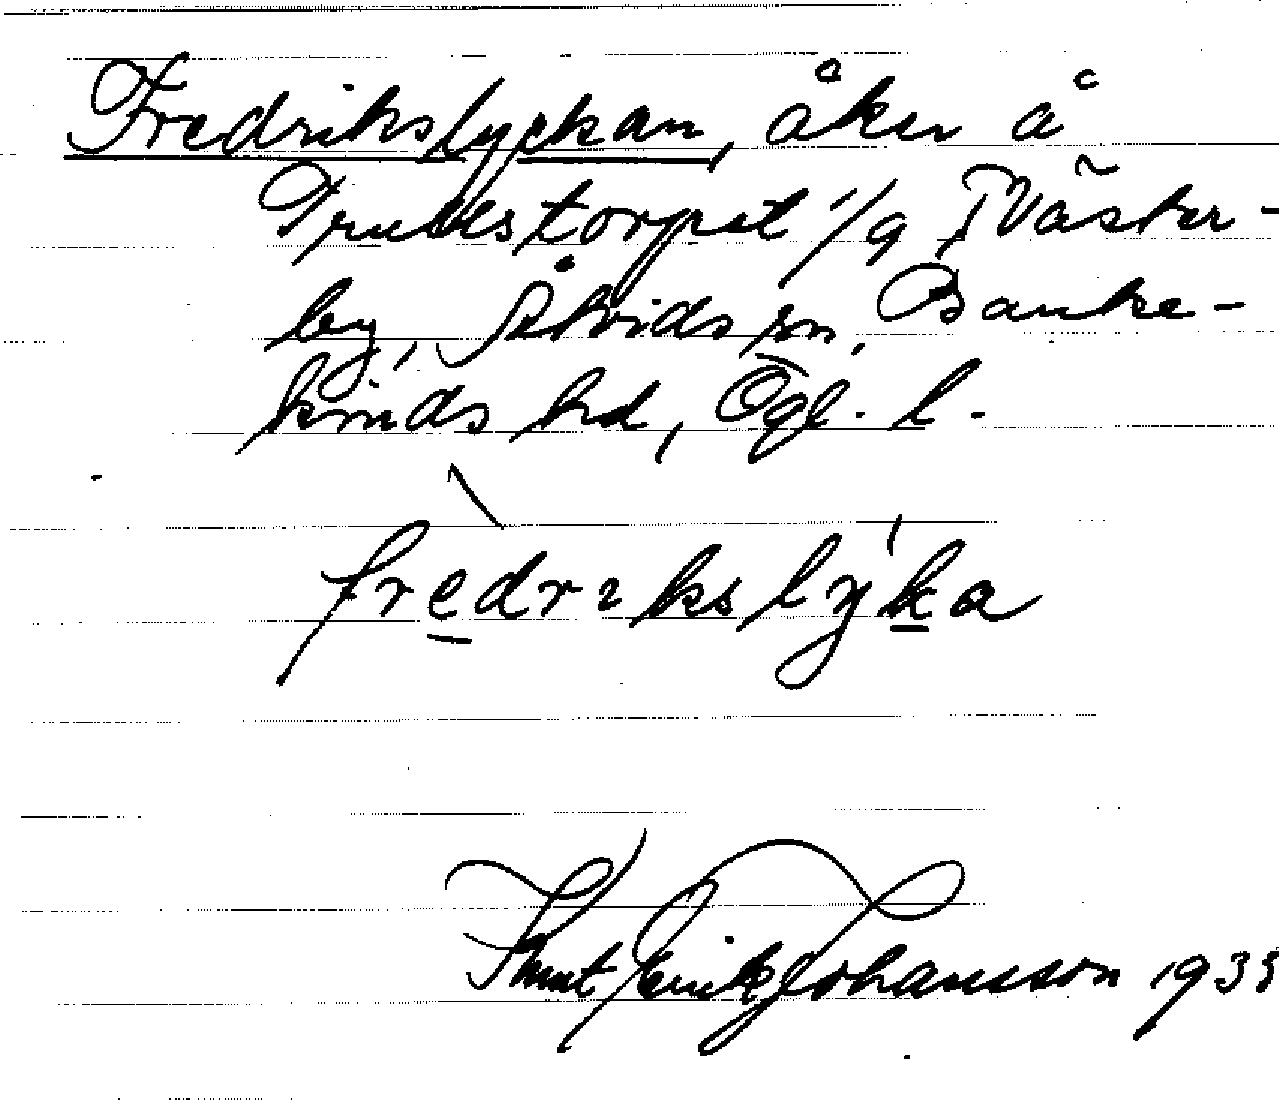 Fredrikslyckan, åker å
Trulstorpet 1/9 i Väster-
by, Åtvids sn, Banke-
kinds hd, Ögl. l.
fredrikslyka
Knut Erik Johansson 1933